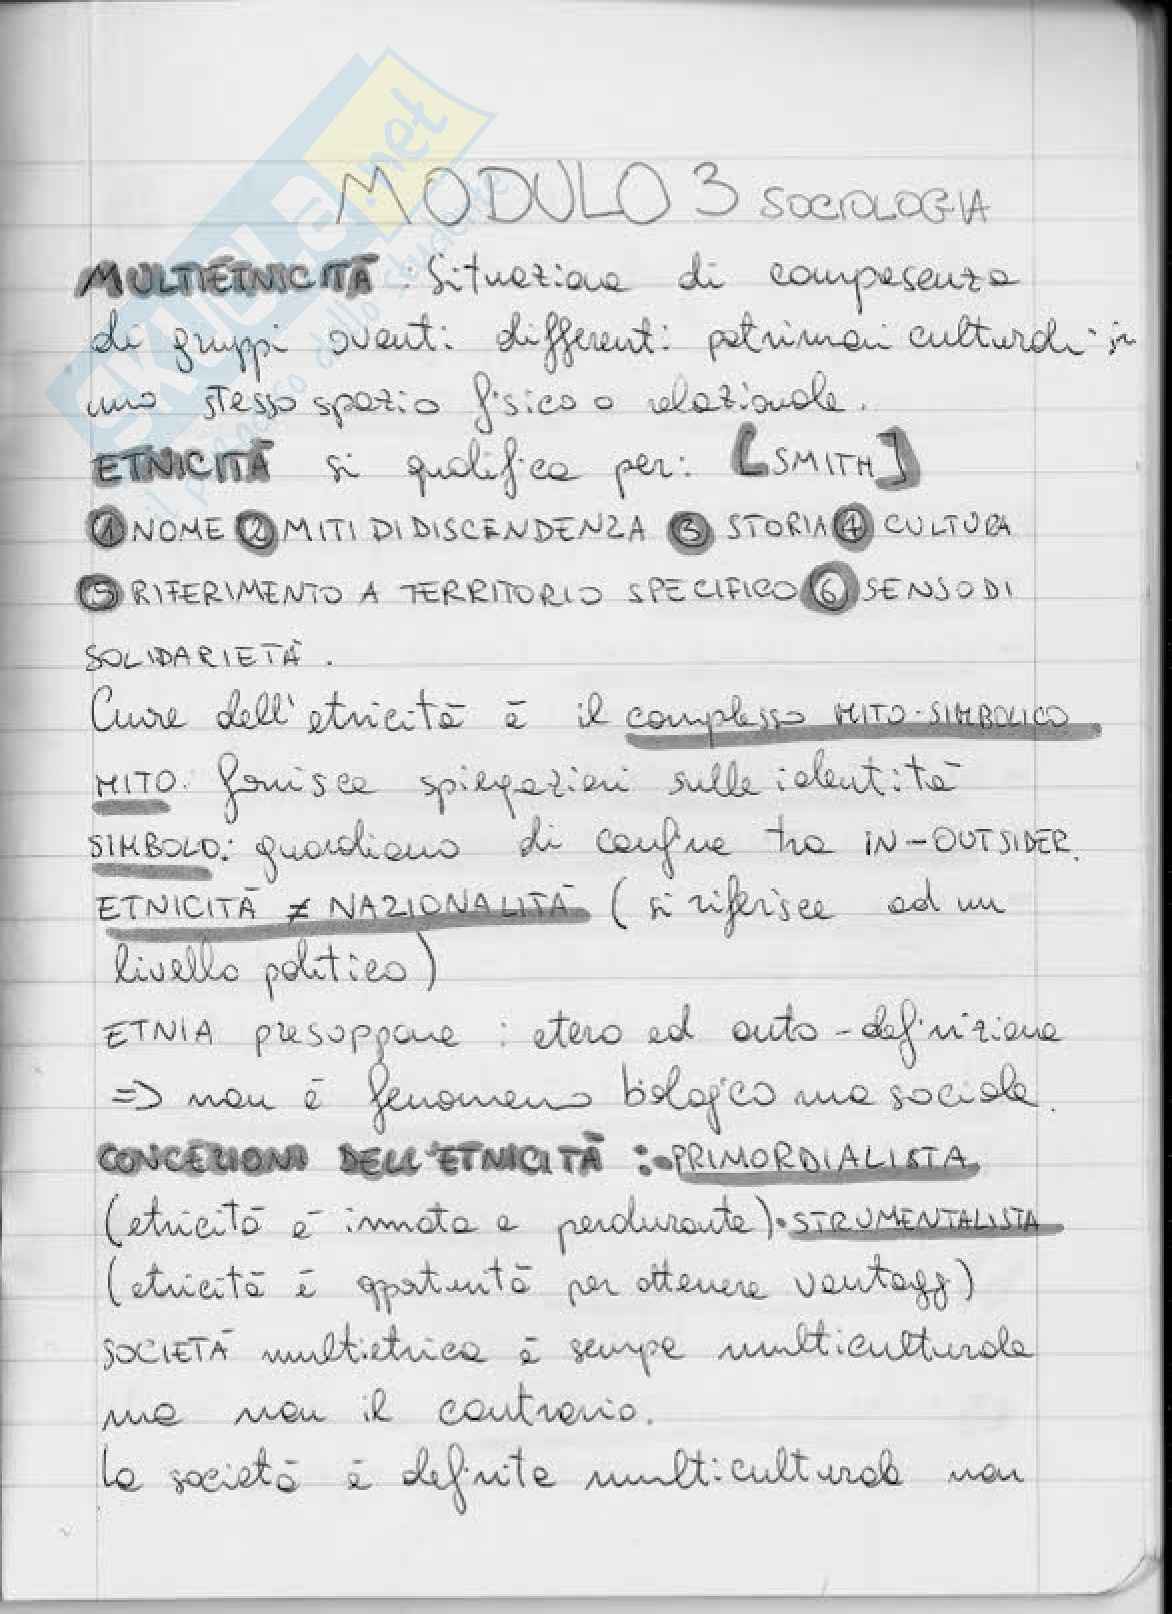 SKUOLA.net
il paradiso dello studente
MODULO 3 SOCIOLOGIA
MULTIETNICITÀ: Situazione di compesenza
di gruppi aventi differenti patrimoni culturali in
uno stesso spazio fisico o relazionale.
ETNICITÀ si qualifica per: [SMITH]
① NOME ② MITI DI DISCENDENZA ③ STORIA ④ CULTURA
⑤ RIFERIMENTO A TERRITORIO SPECIFICO ⑥ SENSO DI
SOLIDARIETÀ.
Cuore dell'etnicità è il complesso MITO-SIMBOLICO
MITO: fornisce spiegazioni sulle identità
SIMBOLO: guardiano di confine tra IN-OUTSIDER.
ETNICITÀ ≠ NAZIONALITÀ (si riferisce ad un
livello politico)
ETNIA presuppone: etero ed auto-definizione
=> non è fenomeno biologico ma sociale.
CONCEZIONI DELL'ETNICITÀ: • PRIMORDIALISTA
(etnicità è innata e perdurante) • STRUMENTALISTA
(etnicità è opportunità per ottenere vantaggi)
SOCIETÀ multietnica è sempre multiculturale
ma non il contrario.
La società è definita multiculturale non